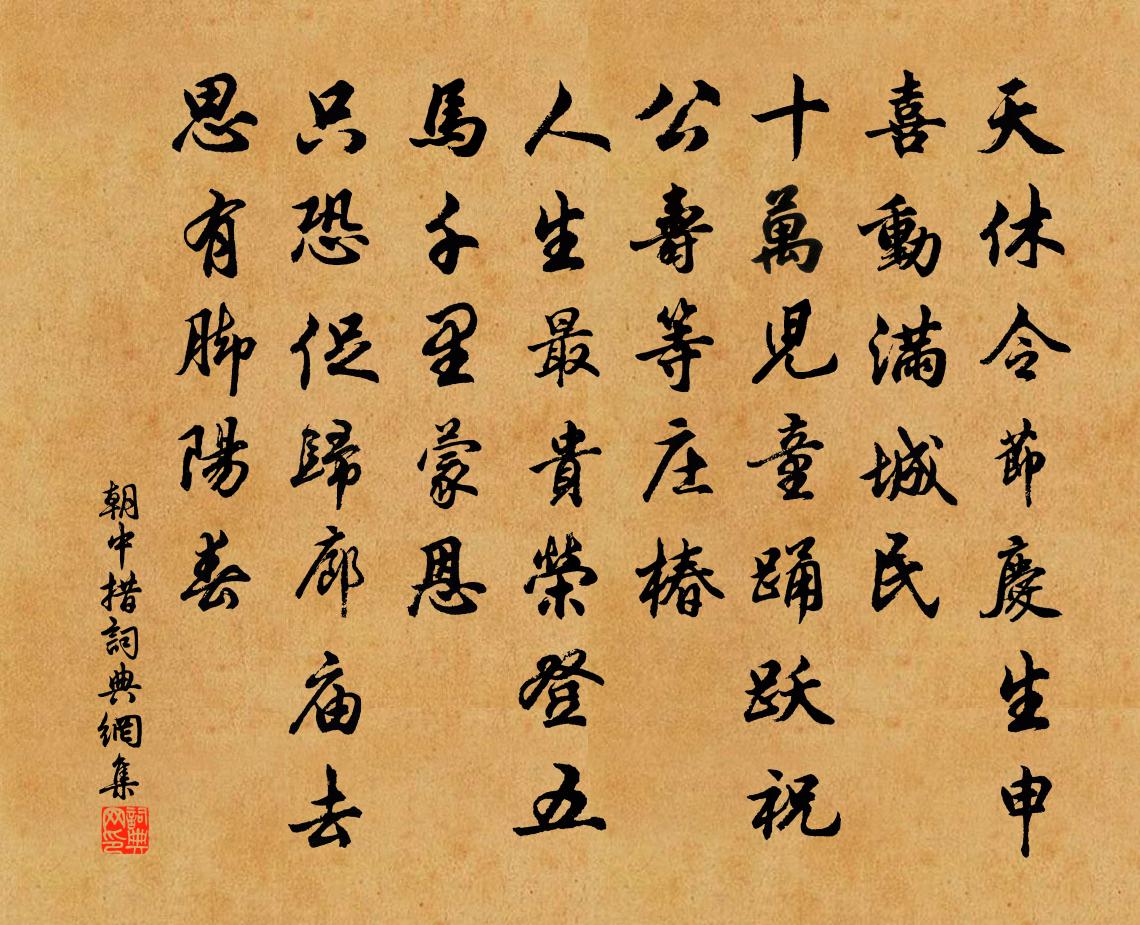 天休令節慶生申
喜動滿城民
十萬兒童踊跃祝
公壽等庄椿
人生最貴榮登五
馬千里蒙恩
只恐促歸廊庙去
思有脚陽春
朝中措詞典網集
詞典网印